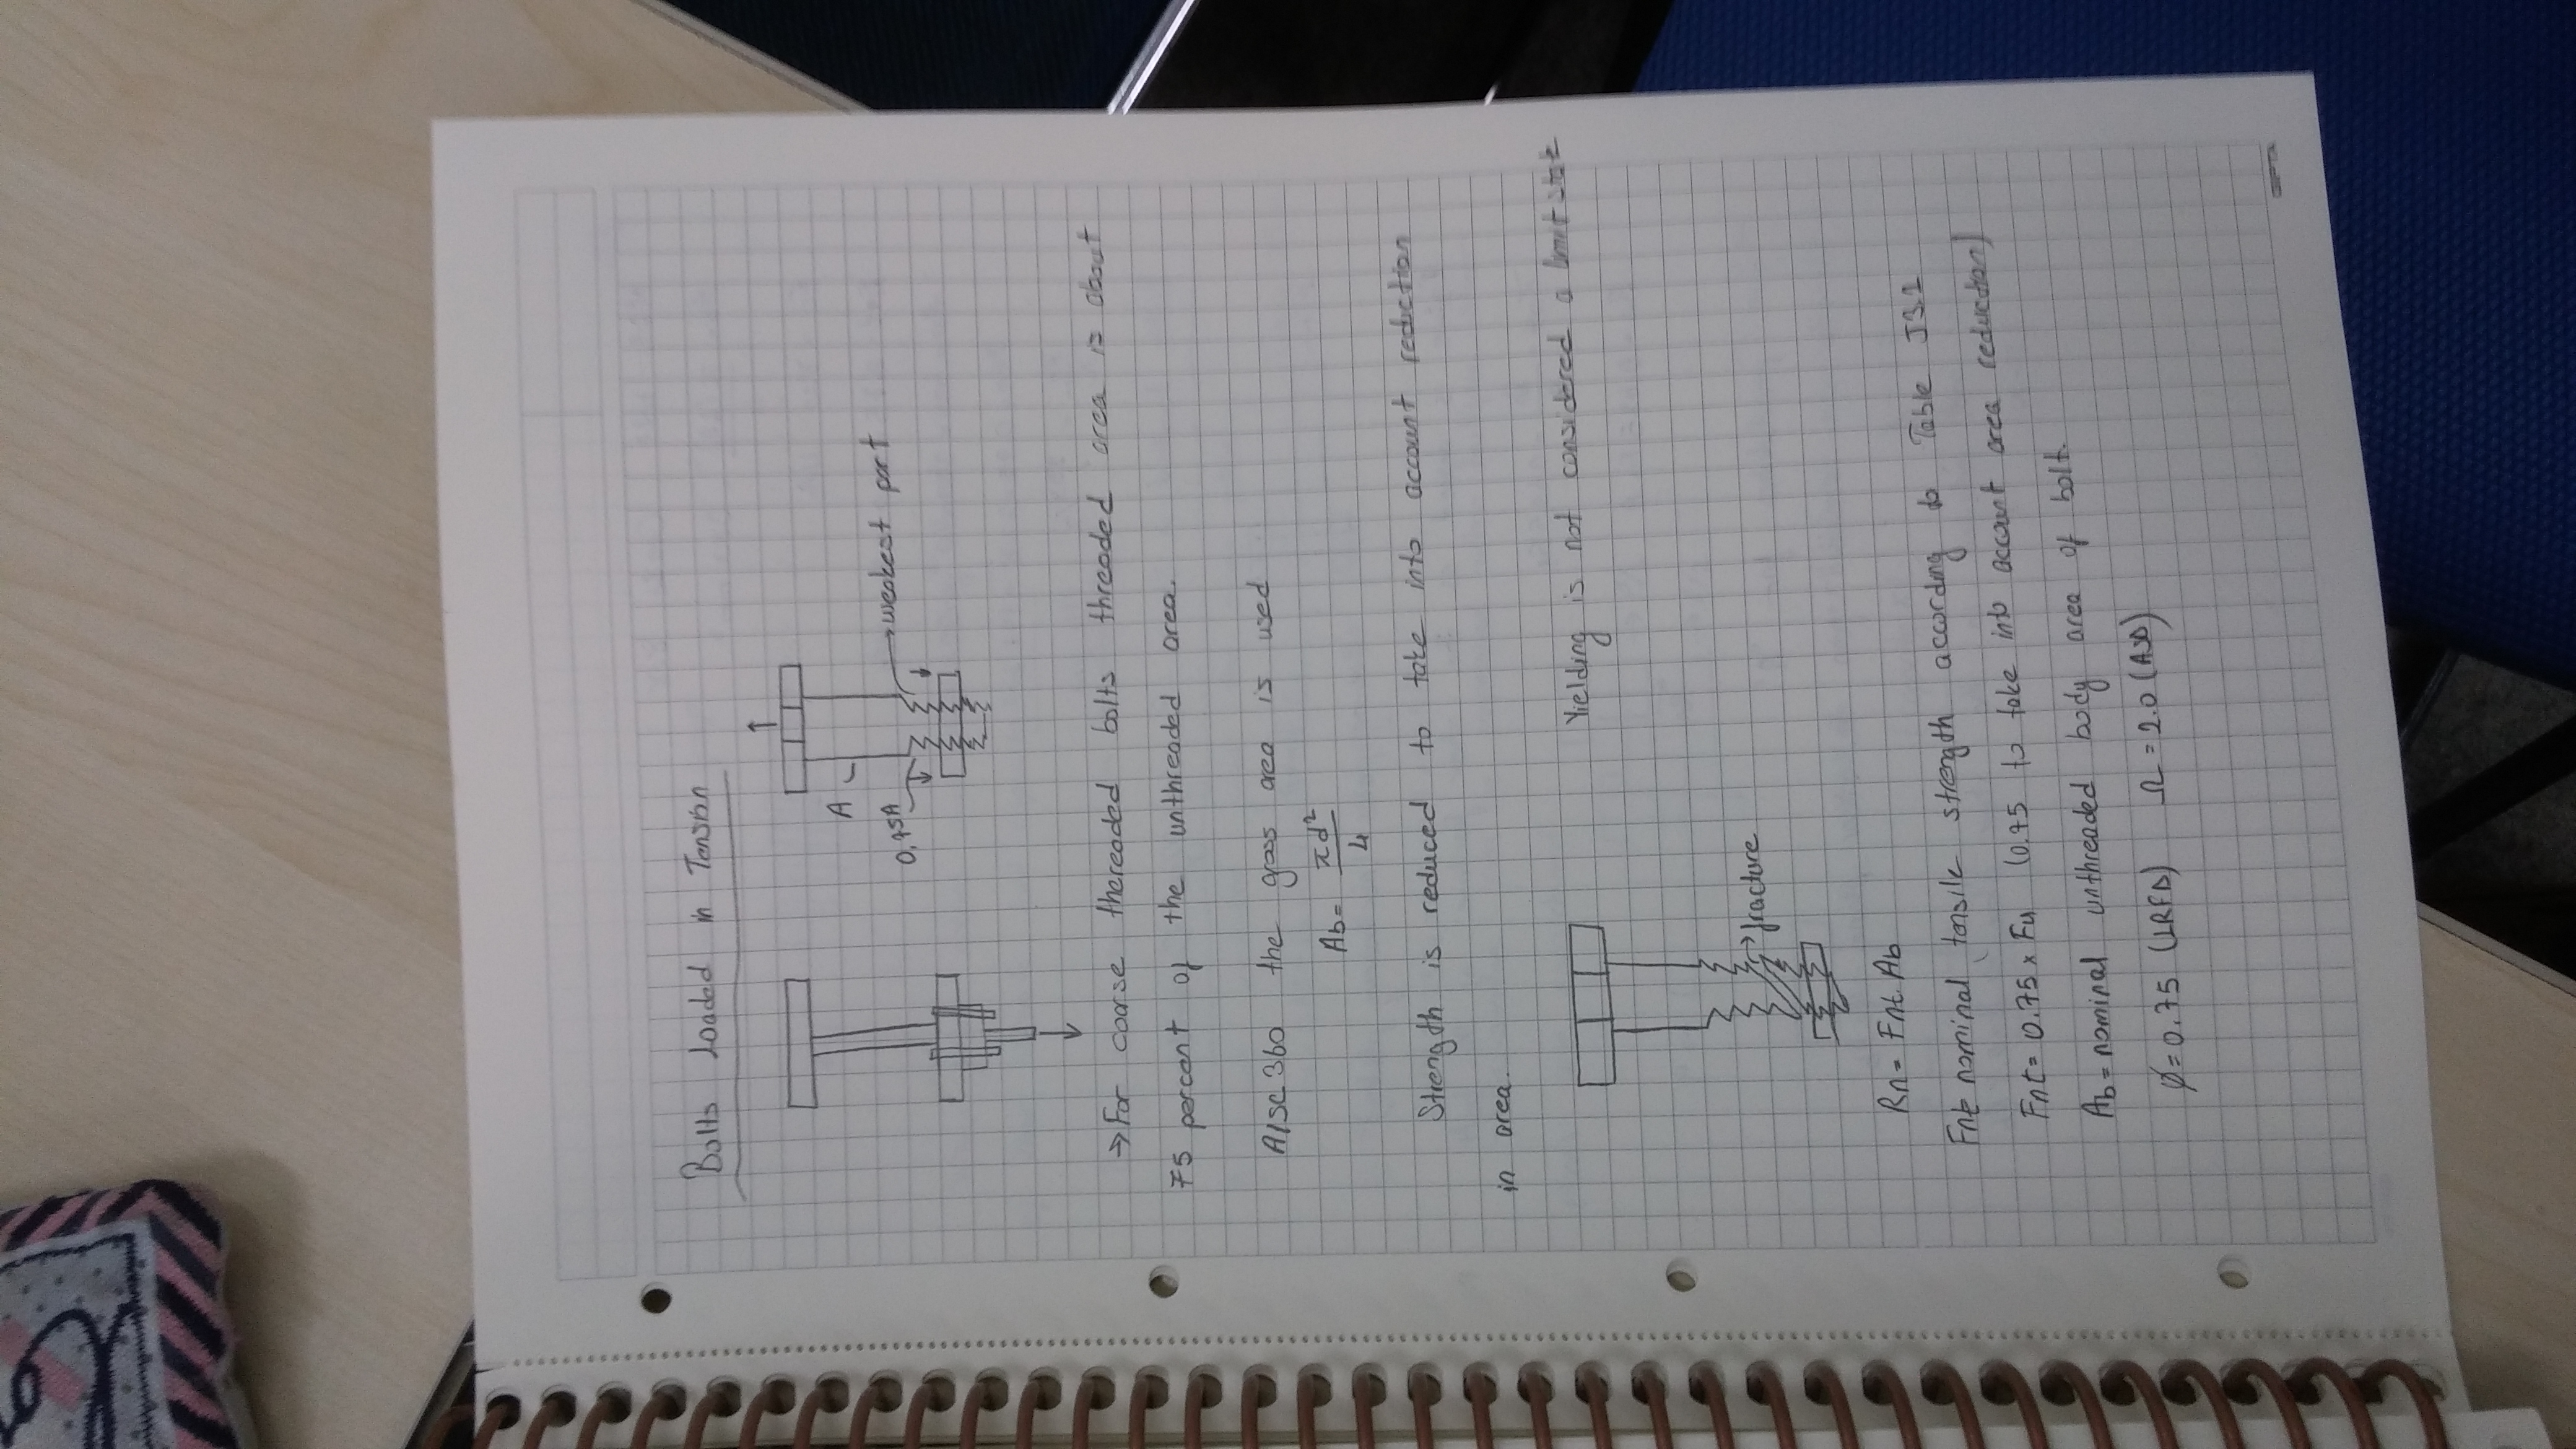 Bolts Loaded in Tension
A
0,75A
→weakest part
→For coarse thereaded bolts threaded area is about
75 percent of the unthreaded area.
AISC 360 the gross area is used
Ab= πd²/4
Strength is reduced to take into account reduction
in area.
Yielding is not considered a limit state
→fracture
Rn= Fnt. Ab
Fnt nominal tensile strength according to Table J3.2
Fnt= 0.75 x Fu (0.75 to take into account area reduction)
Ab= nominal unthreaded body area of bolt.
Ø= 0.75 (LRFD) Ω = 2.0 (ASD)
GIPTA